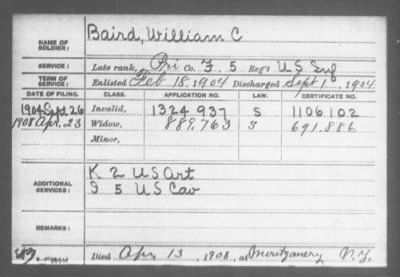 NAME OF SOLDIER: Baird, William C
SERVICE: Late rank, Pri Co. F, 5 Reg't U S Inf
TERM OF SERVICE: Enlisted Feb 18, 1904 Discharged Sept 1, 1904
DATE OF FILING. CLASS. APPLICATION NO. LAW. CERTIFICATE NO.
1904 Sept. 26 Invalid, 1324 937 S 1106102
1908 Apr. 23 Widow, 889,763 S 691,886
Minor,
ADDITIONAL SERVICES: K 2 US Art
I 5 U S Cav
REMARKS:
Died Apr 13, 1908, at Montgomery N.Y.